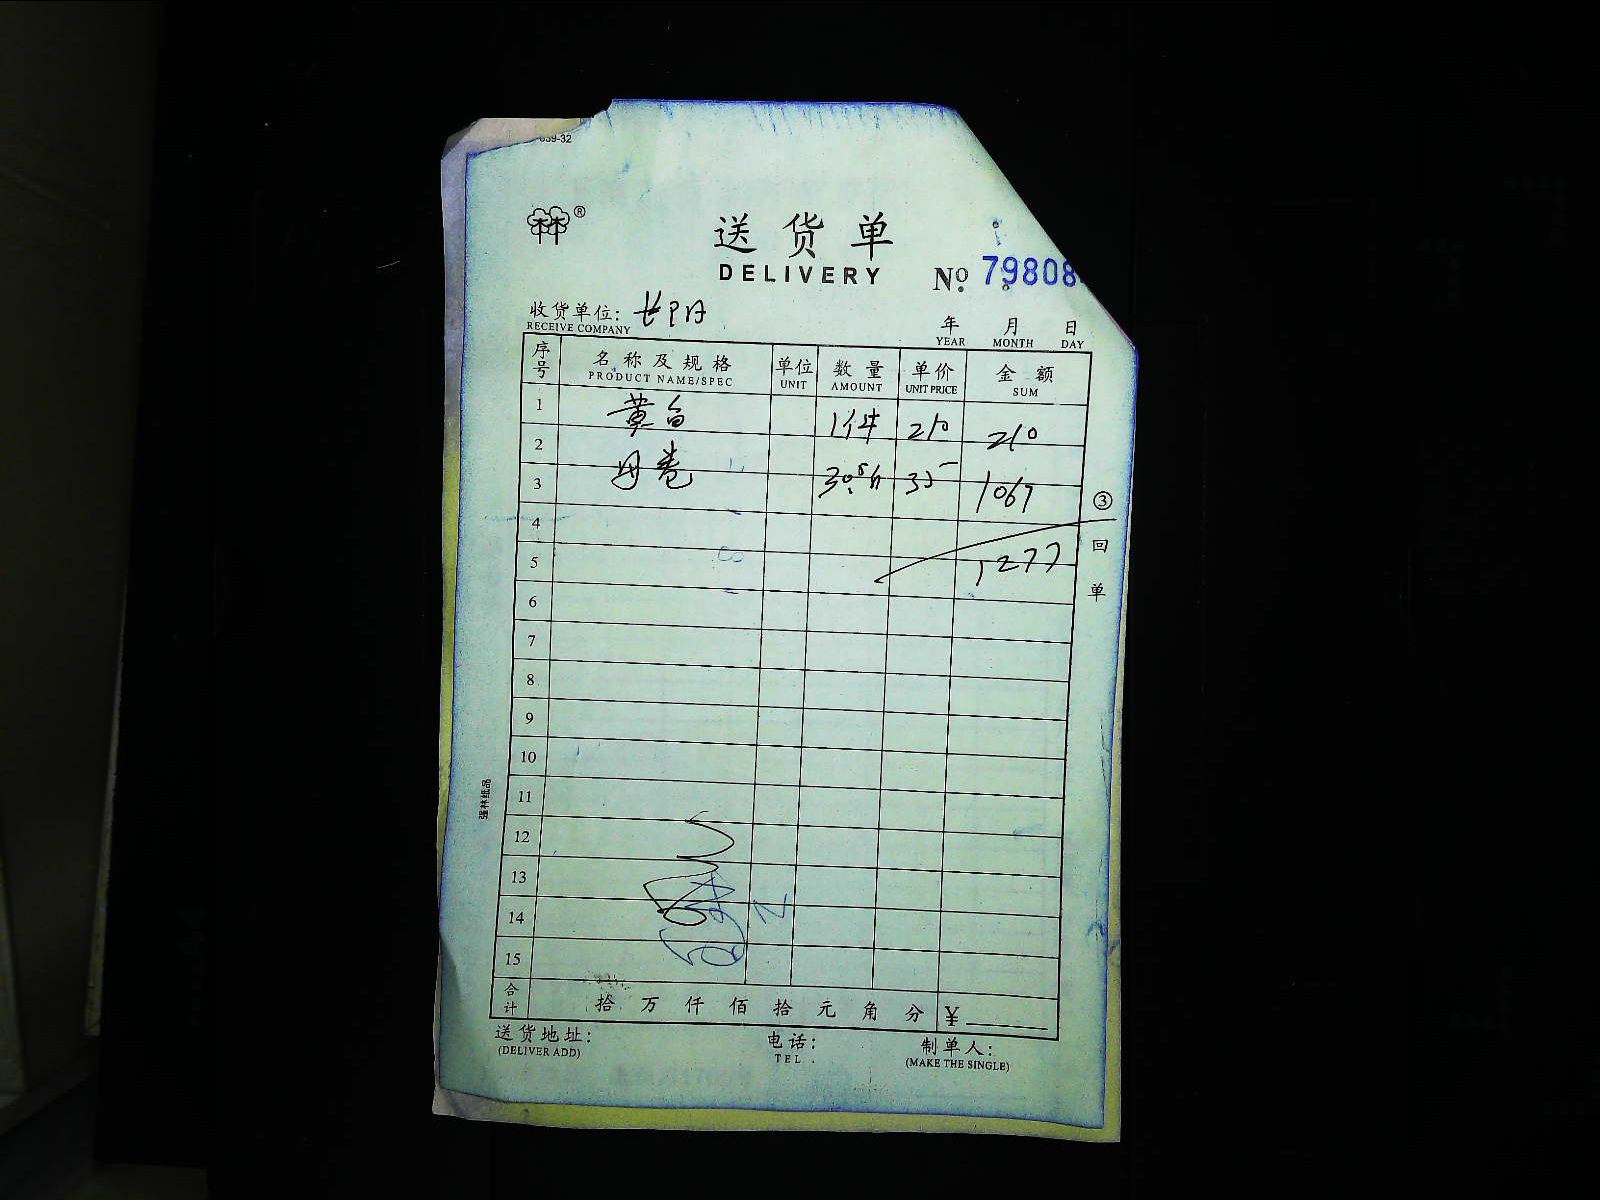 659-32
®
送货单
DELIVERY № 79808
收货单位: 长阳
RECEIVE COMPANY
年 月 日
YEAR MONTH DAY
序号 名称及规格 单位 数量 单价 金额
PRODUCT NAME/SPEC UNIT AMOUNT UNIT PRICE SUM
1 黄白 1件 210 210
2
3 毋卷 30.5斤 35 1067
4
5 1277
6
7
8
9
10
11
12
13
14
15
合计 拾 万 仟 佰 拾 元 角 分 ¥
送货地址: 电话: 制单人:
(DELIVER ADD) TEL (MAKE THE SINGLE)
③回单
强林纸品